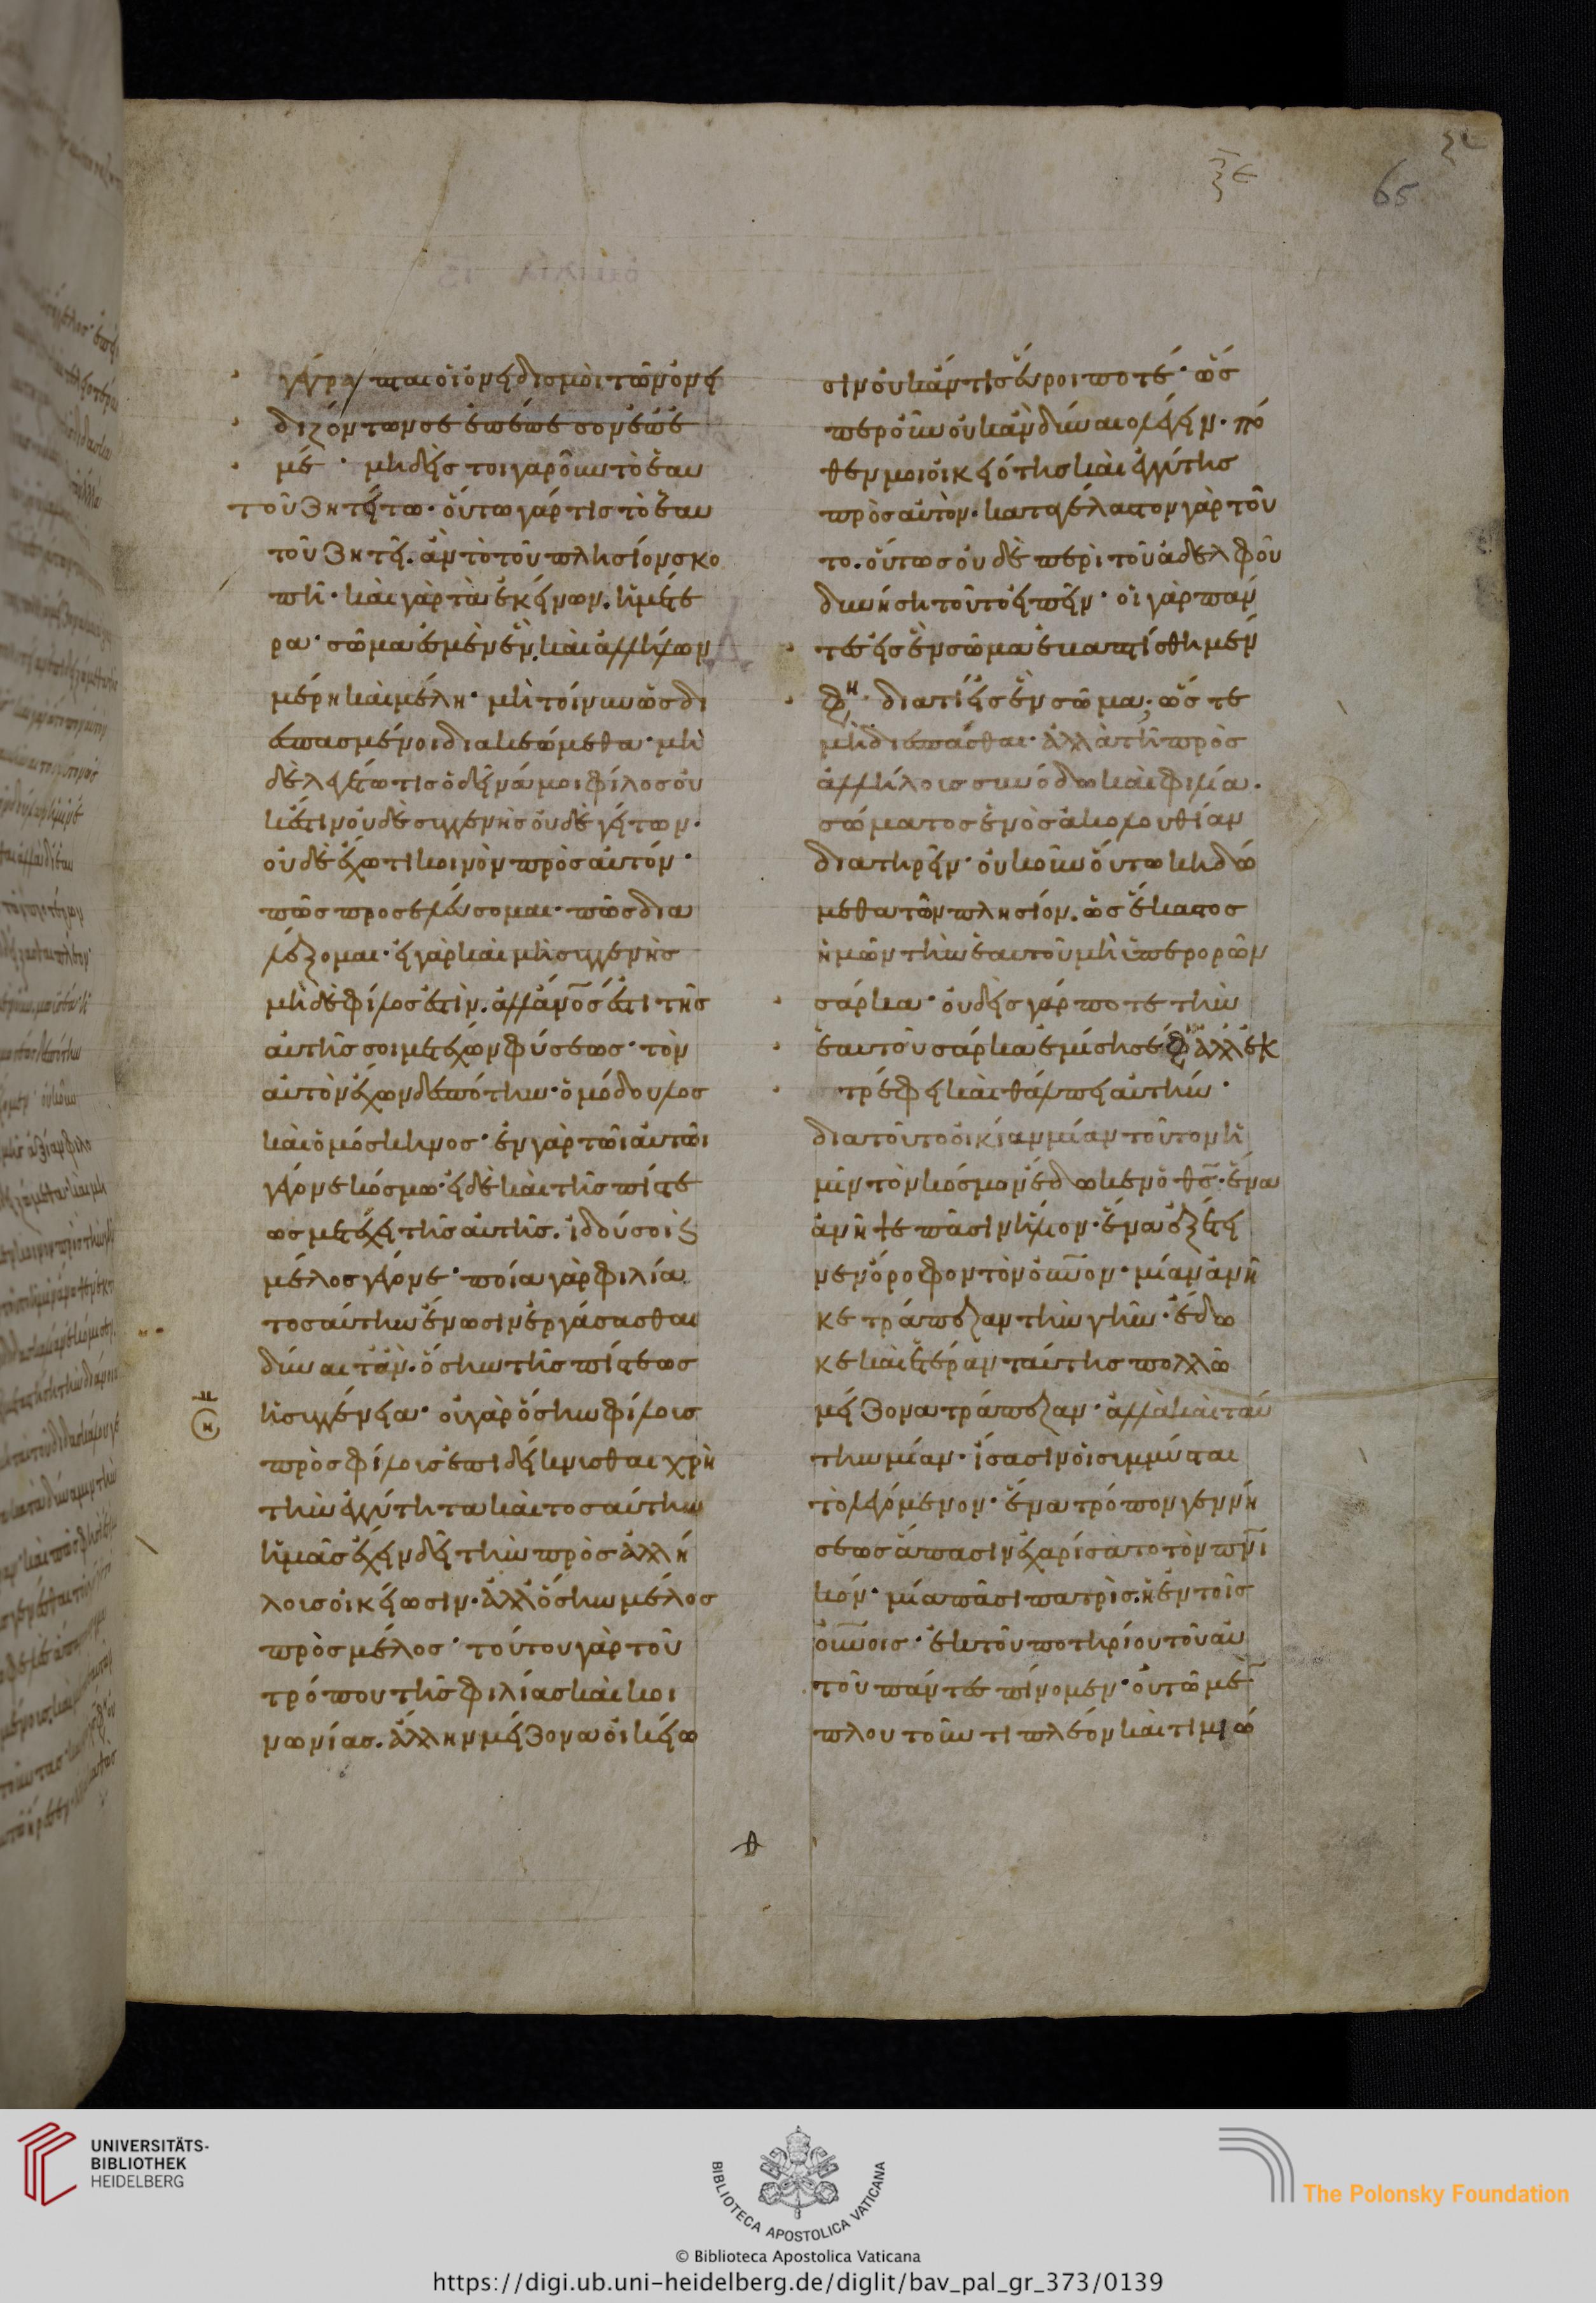 ξε
65
γέγραπται οἱ ὀνειδισμοὶ τῶν ὀνει
διζόντων σε ἐπέπεσον ἐπ' ἐ
μέ· μηδεὶς τοιγαροῦν τὸ ἑαυ
τοῦ ζητείτω· οὕτω γάρ τις τὸ ἑαυ
τοῦ ζητεῖ. ἂν τὸ τοῦ πλησίον σκο
πῆ· καὶ γὰρ τὰ ἐκείνων. ἡμέτε
ρα· σῶμα ἐσμὲν ἓν. καὶ ἀλλήλων
μέρη καὶ μέλη· μὴ τοίνυν ὡς δι
εσπασμένοι διακεώμεθα· μὴ
δὲ λεγέτω τις ὁ δεῖνά μοι φίλος οὐ
κ ἔστιν οὐδὲ συγγενὴς οὐδὲ γείτων.
οὐδὲ ἔχω τι κοινὸν πρὸς αὐτόν·
πῶς προσελεύσομαι· πῶς δια
λέξομαι· εἰ γὰρ καὶ μὴ συγγενὴς
μὴ δὲ φίλος ἐστὶν. ἀλλ' ἄνος ἐστι τῆς
αὐτῆς σοι μετέχων φύσεως· τὸν
αὐτὸν ἔχων δεσπότην· ὁμόδουλος
καὶ ὁμόσκηνος· ἐν γὰρ τῶι αὐτῶι
γέγονε κόσμω· εἰ δὲ καὶ τῆς πίστε
ως μετέχει τῆς αὐτῆς. ἰδού σοι καὶ
μέλος γέγονε· ποία γὰρ φιλία
τοσαύτην ἕνωσιν ἐργάσασθαι
δύναιτ' ἂν. ὅσην τῆς πίστεως
ἡ συγγένεια· οὐ γὰρ ὅσην φίλοις
πρὸς φίλους ἐπιδείκνυσθαι χρὴ
τὴν ἐγγύτητα καὶ τοσαύτην
ἡμᾶς ἔχειν δεῖ τὴν πρὸς ἀλλή
λους οἰκείωσιν. ἀλλ' ὅσην μέλος
πρὸς μέλος· τούτου γὰρ τοῦ
τρόπου τῆς φιλίας καὶ κοι
νωνίας. ἄλλην μείζονα οἰκείω
σιν οὐκ ἄν τις εὕροι ποτέ· ὥσ
περ οὖν οὐκ ἂν δύναιο λέγειν. πό
θεν μοι οἰκειότης καὶ ἐγγύτης
πρὸς αὐτὸν. καταγέλαστον γὰρ τοῦ
το. οὕτως οὐδὲ περὶ τοῦ ἀδελφοῦ
δυνήση τοῦτο εἰπεῖν· οἱ γὰρ πάν
τες εἰς ἓν σῶμα ἐβαπτίσθημεν
φη· διατί εἰς ἓν σῶμα; ὥστε
μὴ διεσπάσθαι. ἀλλὰ τῆ πρὸς
ἀλλήλους συνόδω καὶ φιλία.
σώματος ἑνὸς ἀκολουθίαν
διατηρεῖν· οὐκοῦν οὕτω κηδώ
μεθα τῶν πλησίον. ὡς ἕκαστος
ἡμῶν τὴν ἑαυτοῦ μὴ ὑπερορῶν
σάρκα· οὐδεὶς γάρ ποτε τὴν
ἑαυτοῦ σάρκα ἐμίσησέ φη ἀλλ' ἐκ
τρέφει καὶ θάλπει αὐτήν·
διατοῦτο οἰκίαν μίαν τοῦτον ἡ
μῖν τὸν κόσμον ἔδωκεν ὁ θς· ἕνα
ἀνῆψε πᾶσιν ἥλιον. ἕνα ἐξέτει
νεν ὄροφον τὸν οὐνον· μίαν ἀνῆ
κε τράπεζαν τὴν γῆν· ἔδω
κε καὶ ἑτέραν ταύτης πολλῶ
μείζονα τράπεζαν· ἀλλὰ καὶ ταύ
την μίαν· ἴσασιν οἱ συμμύσται
τὸ λεγόμενον· ἕνα τρόπον γεννή
σεως ἅπασιν ἐχαρίσατο τὸν πνι
κόν· μία πᾶσι πατρὶς. ἡ ἐν τοῖς
οὐνοις· ἐκ τοῦ ποτηρίου τοῦ αὐ
τοῦ πάντες πίνομεν· οὐ τῶ μὲν
πλουτοῦντι πλέον καὶ τιμιώ
UNIVERSITÄTS-
BIBLIOTHEK
HEIDELBERG
BIBLIOTECA APOSTOLICA VATICANA
The Polonsky Foundation
© Biblioteca Apostolica Vaticana
https://digi.ub.uni-heidelberg.de/diglit/bav_pal_gr_373/0139